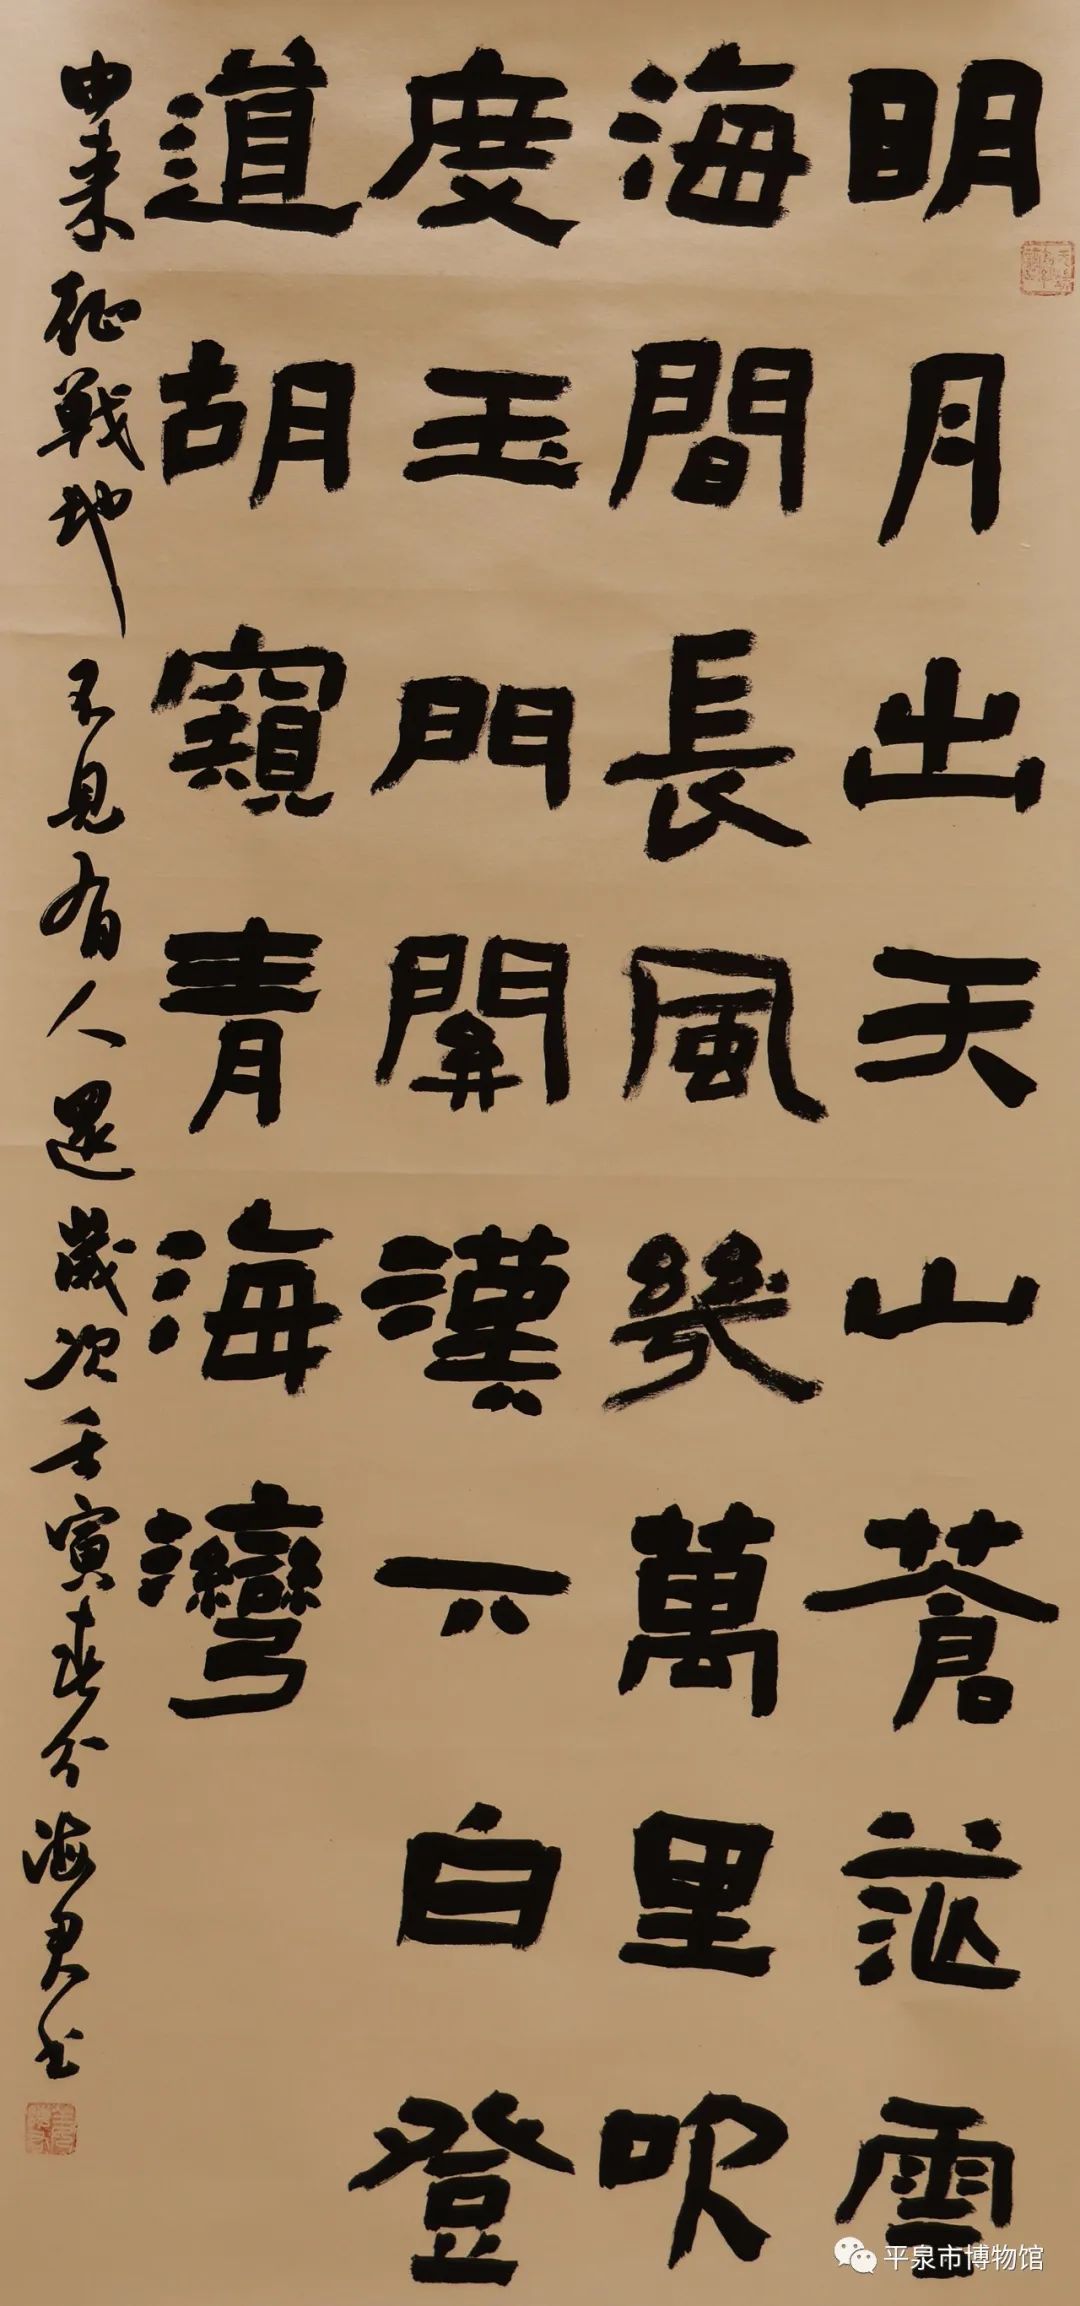 明月出天山蒼茫雲
海間長風幾萬里吹
度玉門關漢下白登
道胡窺青海灣
由来征戰地不見有人還歲次壬寅春分海君书
平泉市博物馆